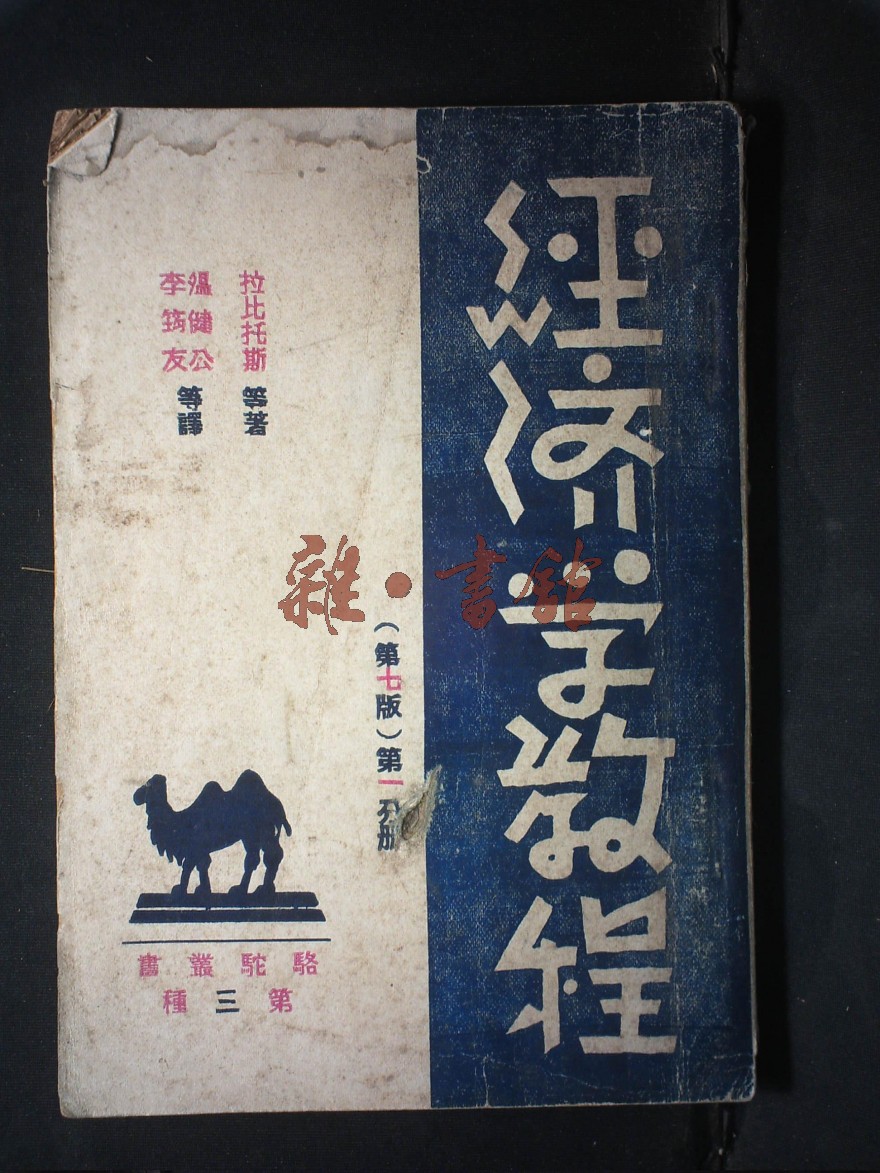 經济学教程
（第七版）第一分册
拉比托斯等著
溫健公
李筠友
等譯
駱駝叢書
第三種
雜·書館